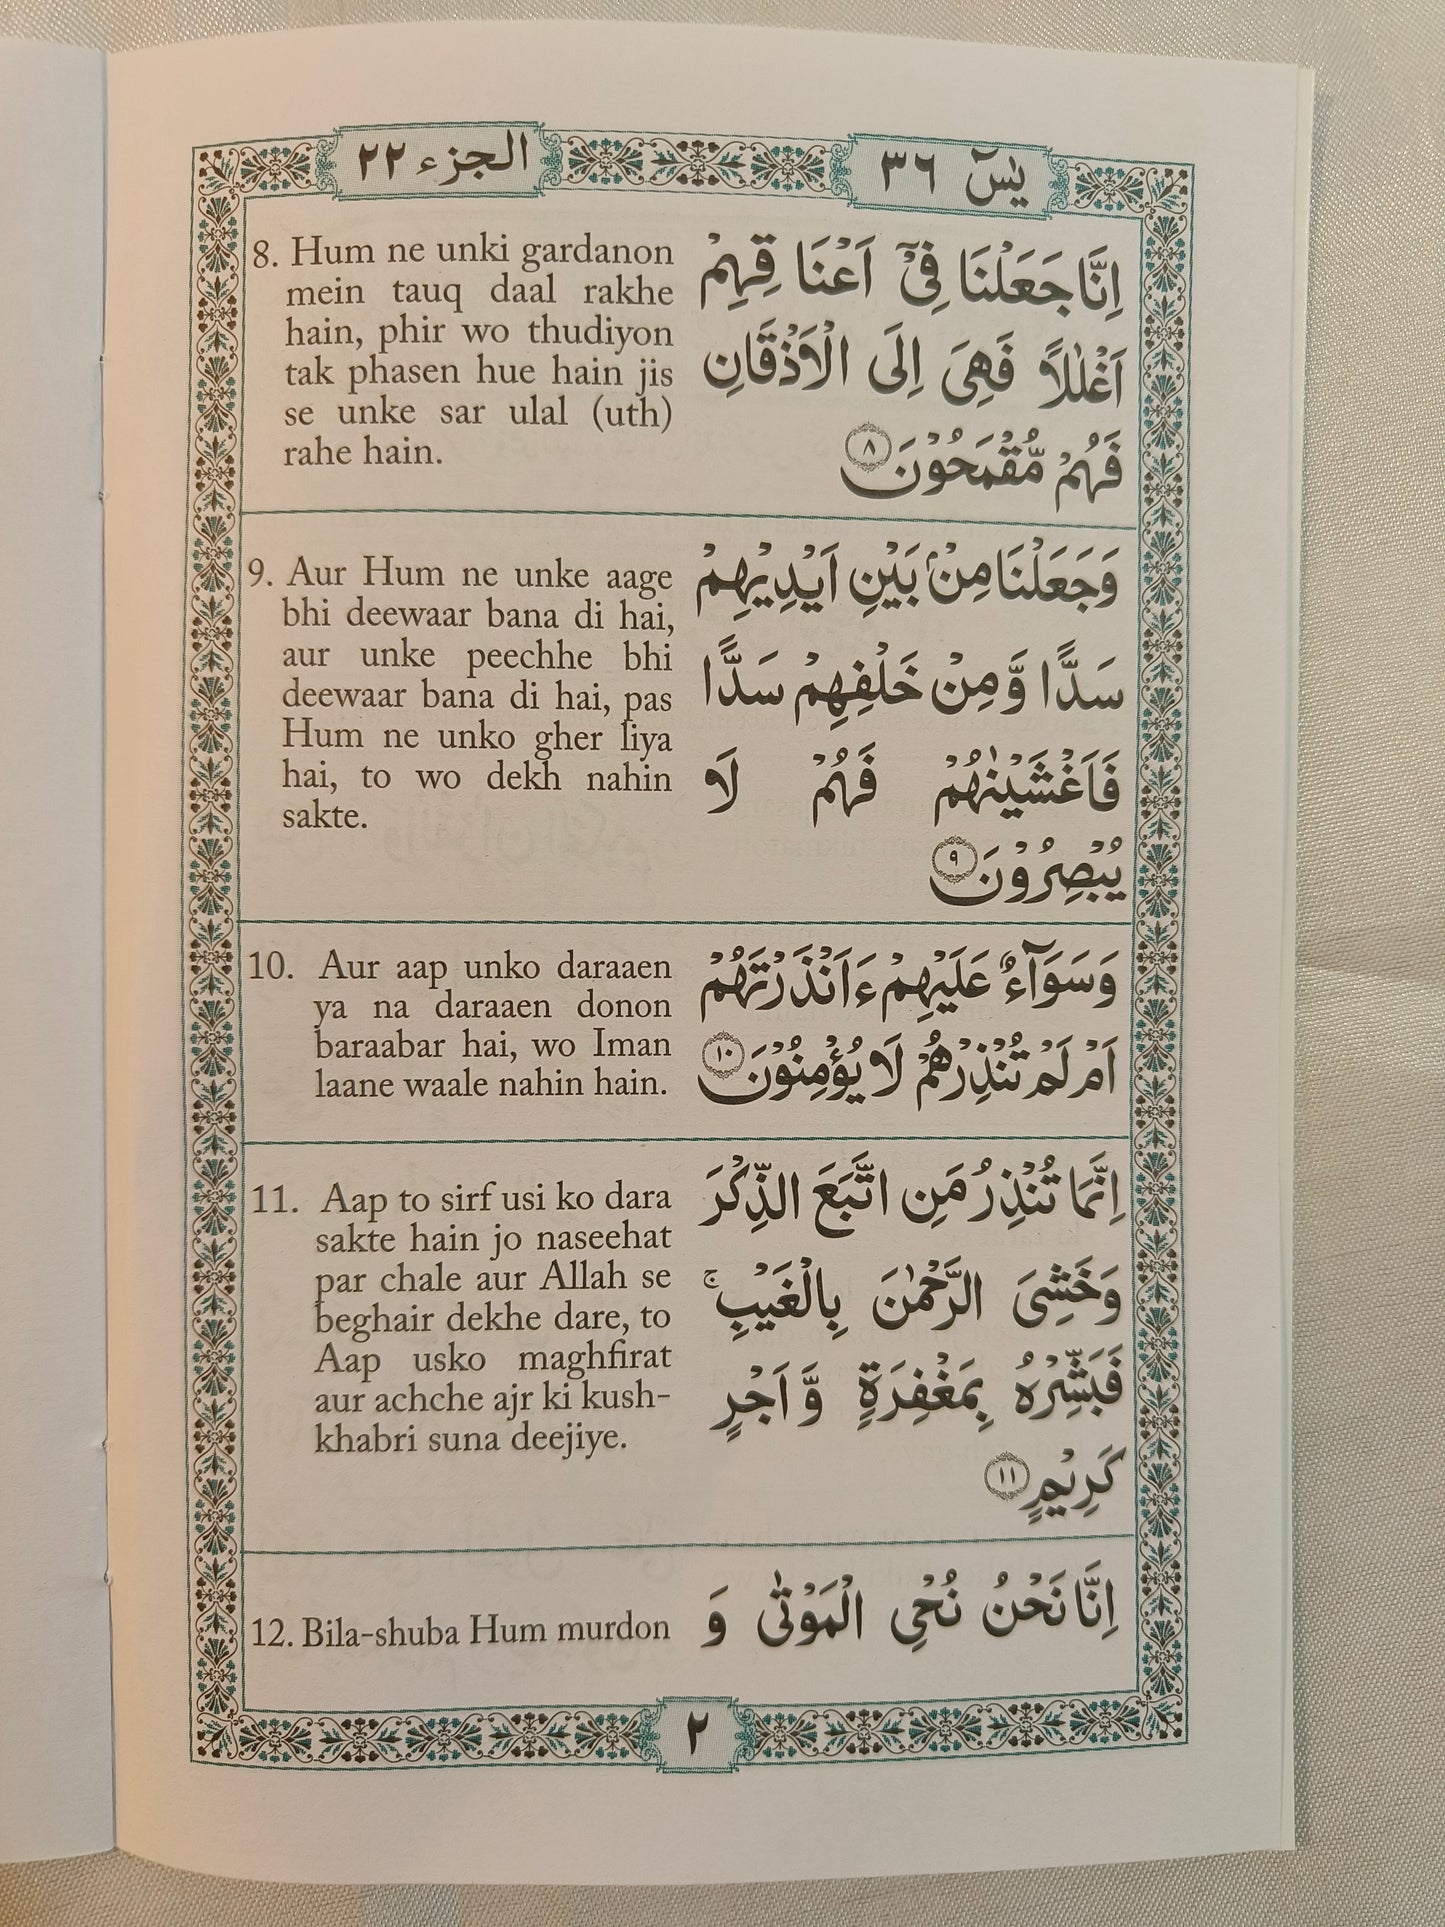 الجزء ٢٢
يٰسٓ ٣٦
8. Hum ne unki gardanon
mein tauq daal rakhe
hain, phir wo thudiyon
tak phasen hue hain jis
se unke sar ulal (uth)
rahe hain.
اِنَّا جَعَلْنَا فِىْٓ اَعْنَا قِهِمْ
اَغْلٰلًا فَهِىَ اِلَى الْاَذْقَانِ
فَهُمْ مُّقْمَحُوْنَ ٨
9. Aur Hum ne unke aage
bhi deewaar bana di hai,
aur unke peechhe bhi
deewaar bana di hai, pas
Hum ne unko gher liya
hai, to wo dekh nahin
sakte.
وَجَعَلْنَا مِنْۢ بَيْنِ اَيْدِيْهِمْ
سَدًّا وَّمِنْ خَلْفِهِمْ سَدًّا
فَاَغْشَيْنٰهُمْ فَهُمْ لَا
يُبْصِرُوْنَ ٩
10. Aur aap unko daraaen
ya na daraaen donon
baraabar hai, wo Iman
laane waale nahin hain.
وَسَوَآءٌ عَلَيْهِمْ ءَاَنْذَرْتَهُمْ
اَمْ لَمْ تُنْذِرْهُمْ لَا يُؤْمِنُوْنَ ١٠
11. Aap to sirf usi ko dara
sakte hain jo naseehat
par chale aur Allah se
beghair dekhe dare, to
Aap usko maghfirat
aur achche ajr ki kush-
khabri suna deejiye.
اِنَّمَا تُنْذِرُ مَنِ اتَّبَعَ الذِّكْرَ
وَخَشِىَ الرَّحْمٰنَ بِالْغَيْبِ ۚ
فَبَشِّرْهُ بِمَغْفِرَةٍ وَّاَجْرٍ
كَرِيْمٍ ١١
12. Bila-shuba Hum murdon
اِنَّا نَحْنُ نُحْىِ الْمَوْتٰى وَ
٢